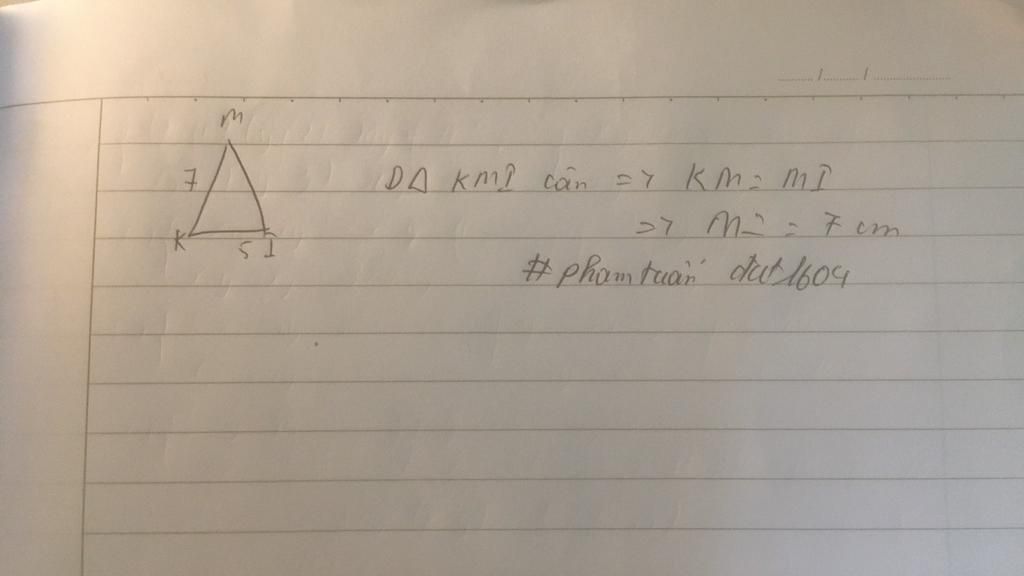 M
7
K
5 I
DΔ KMI cân => KM = MI
=> MI = 7 cm
#phamtuấn đạt1604